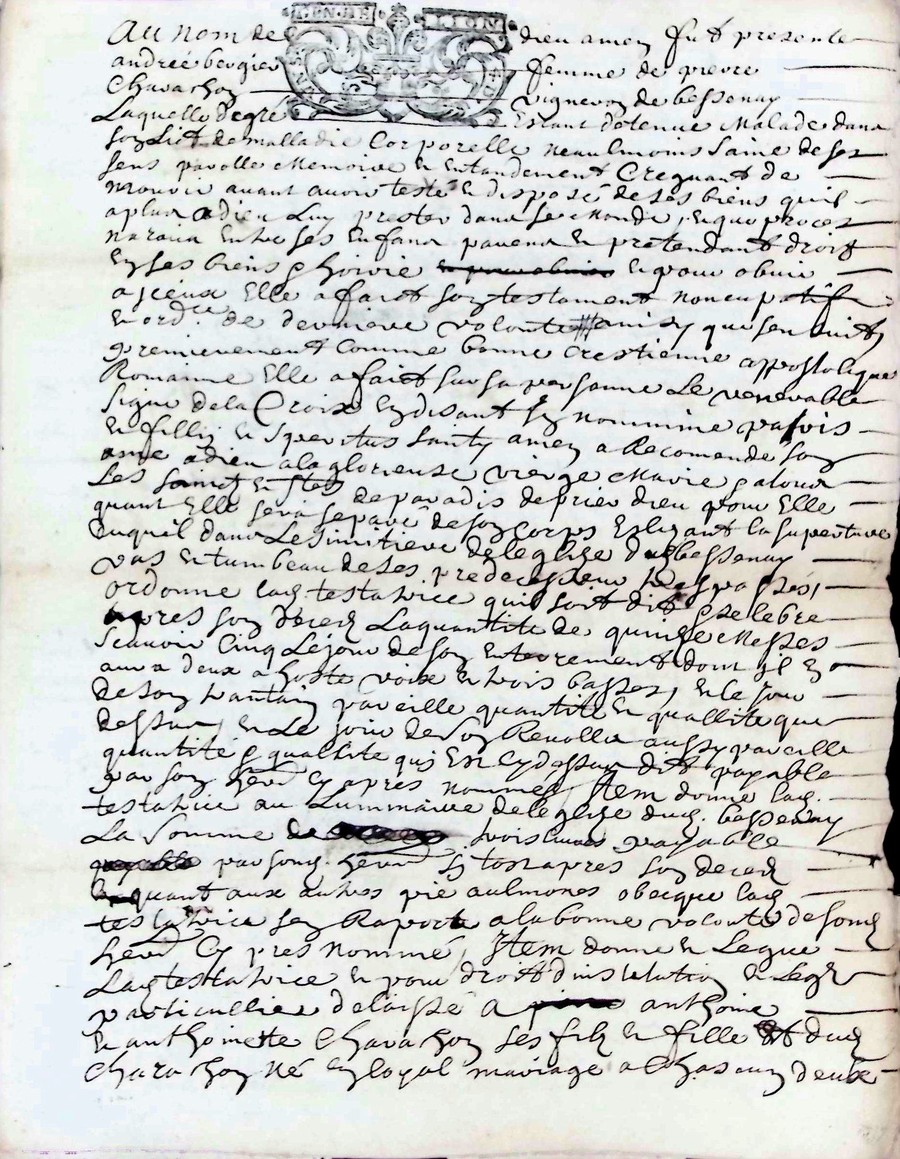 GEN DE LION
Au nom de dieu amen fut presente
andree bergier femme de pierre
Charachon vigneron de bessenay
Laquelle de gre Estant detenue Malade dans
son Lict de malladie Corporelle neaulmoins saine de ses
sens parolle Memoire et Entandement Cregnant de
mourir avant avoir teste et dispose de ses biens quil
a plu a dieu Luy prester dans se monde, et que proces
naraiu Entre ses Enfans parens et pretendant droit
En ses biens et hoirie et pour obvier
a iceux Elle a faict son testament noncupatif
et ordce de derniere volonte ainsy que sen suit
premierement comme bonne crestienne appostolique
Romaine Elle a faict sur sa personne Le venerable
signe de la Croix En disant In nommine patris
et fillij et speritus santy amen a Recomande son
ame a dieu a la glorieuse vierge Marie a tous
Les sainct et stes de paradis de prier dieu pour Elle
quant Elle sera separe de son corps Eslizant la supenture
duquel dans Le simitiere de leglise dud bessenay
vas et tumbeau de ses predecesseur
ordonne lad testatrice quil soit dit et selebre
apres son deced La quantite de quinze Messes
scavoir Cinq Le jour de son Enterrement dont il en
aura deux a hoste voix et trois basses, et le jour
de son pareille quantite et quallite que
dessus, et Le jour de son Revollu aussy pareille
quantite et quallite quis Est Cy dessus dit payable
par son herer Cy apres nomme, Item donne lad.
testatrice au Lumminaire de leglise dud. bessenay
La somme de trois livres payable
par sond. herer sy tost apres son deced
et quant aux autres pie aulmones obceque lad
testatrice sen Raporte a la bonne volonte de sond
herer Cy pres nomme, Item donne et Legue
Lad testatrice et pour droit dinstitution et Legt
particullier delaisse a anthoine
et anthoinette Charachon ses filz et fille dud
Charachon Né En loyal mariage a Chascun deux